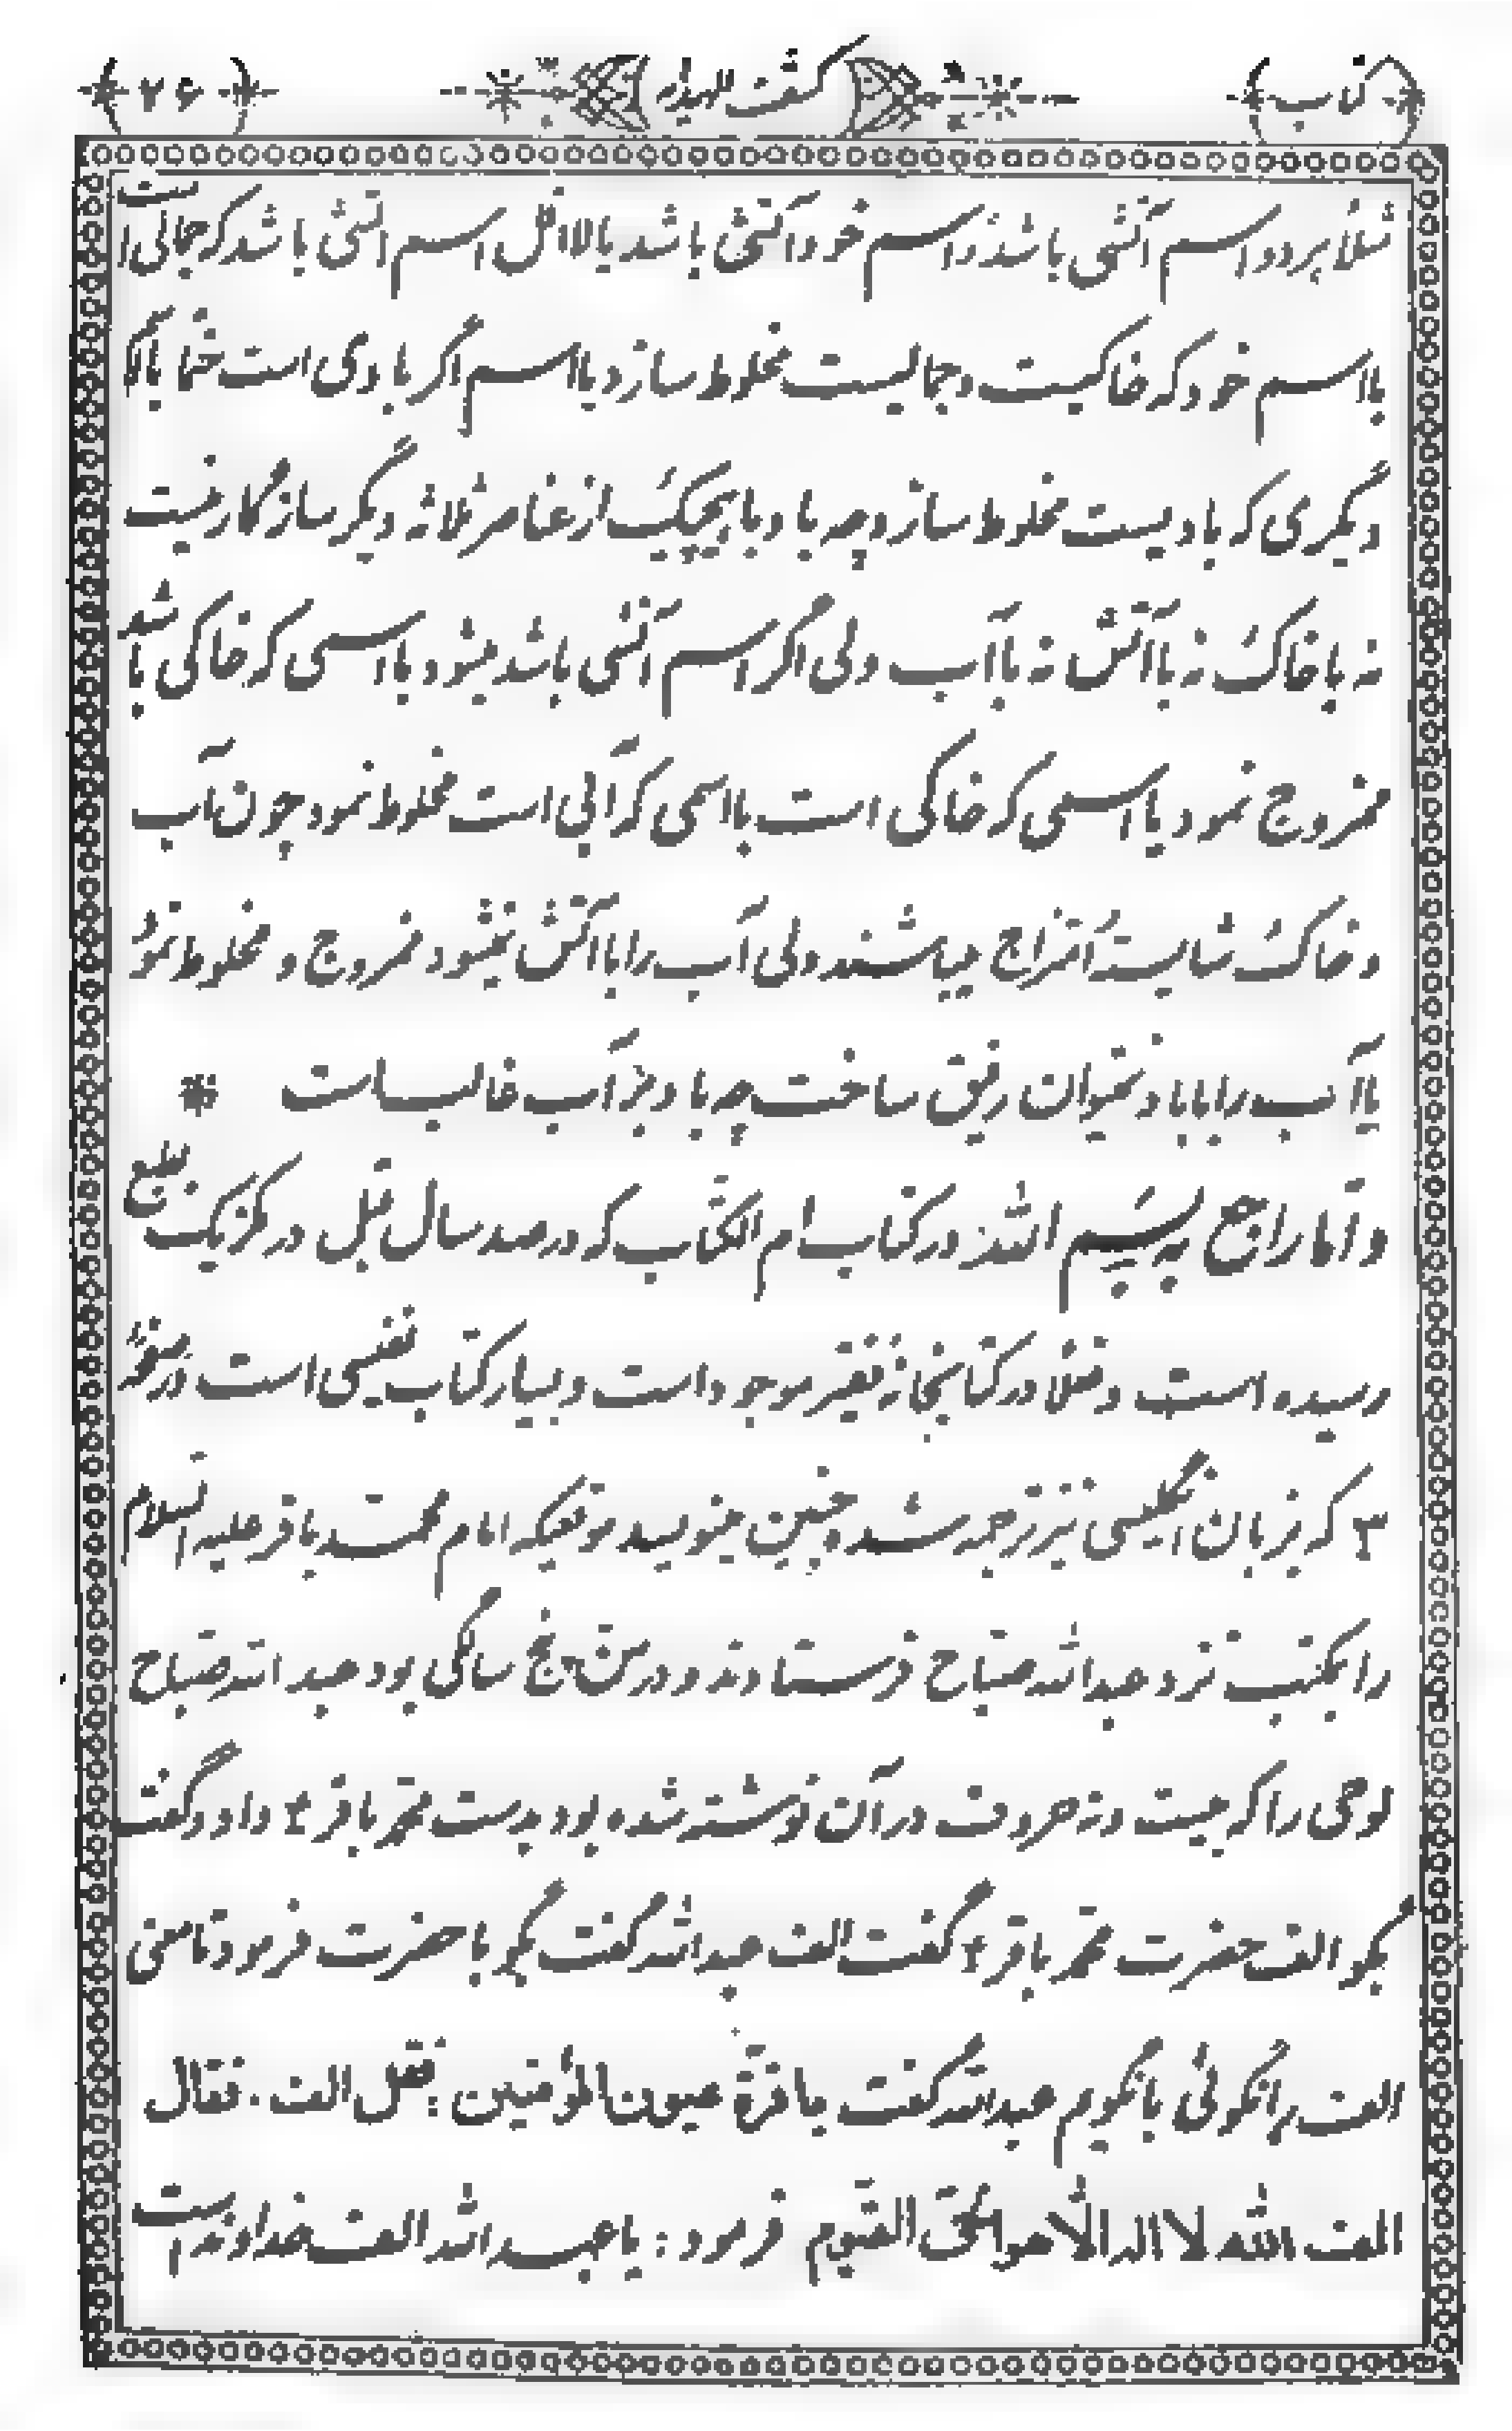 کتاب کشف الهدایه ۲۶
مثلاً هر دو اسم آتشی باشد و اسم خود آتشی باشد یا لااقل اسم آتشی باشد که جمالی است
با اسم خود که خاکیست و جمالیست مخلوط سازد یا اسم اگر بادی است حتماً با
دیگری که بادیست مخلوط سازد چه باد با هیچیک از عناصر ثلاثه دیگر سازگار نیست
نه با خاک نه با آتش نه با آب ولی اگر اسم آتشی باشد میشود با اسمی که خاکی باشد
ممزوج نمود یا اسمی که خاکی است با اسمی که آبی است مخلوط نمود چون آب
و خاک شایسته امتزاج میباشند ولی آب را با آتش نمیشود ممزوج و مخلوط نمود
یا آب را با باد نمیتوان رفیق ساخت چه باد بر آب غالب است *
و اما راجع به بسم الله در کتاب ام الکتاب که در صد سال قبل در بطبع
رسیده است و فعلاً در کتابخانه فقیر موجود است و بسیار کتاب نفیسی است در صفحه
۳ که بزبان انگلیسی نیز ترجمه شده چنین مینویسد موقعیکه امام محمد باقر علیه السلام
را بمکتب نزد عبدالله صباح فرستادند و در سن پنج سالگی بود عبدالله صباح
لوحی را که بیست و نه حروف در آن نوشته شده بود بدست محمد باقر ۴ داد و گفت
بگو الف حضرت محمد باقر ۴ گفت الف عبدالله گفت بگو با حضرت فرمود تا معنی
الف را نگوئی با نگویم عبدالله گفت یا قرة عیون المؤمنین : فقل الف . فقال
الف الله لا اله الا هو الحی القیوم فرمود : یا عبدالله الف خداوند است